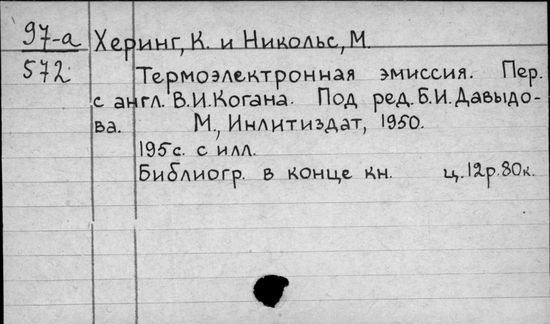 97-а Херинг, К. и Никольс, М.
572 Термоэлектронная эмиссия. Пер.
с англ. В.И.Когана. Под ред. Б.И.Давыдо-
ва. М., Инлитиздат, 1950.
195с. с илл.
Библиогр. в конце кн. ц.12р.80к.